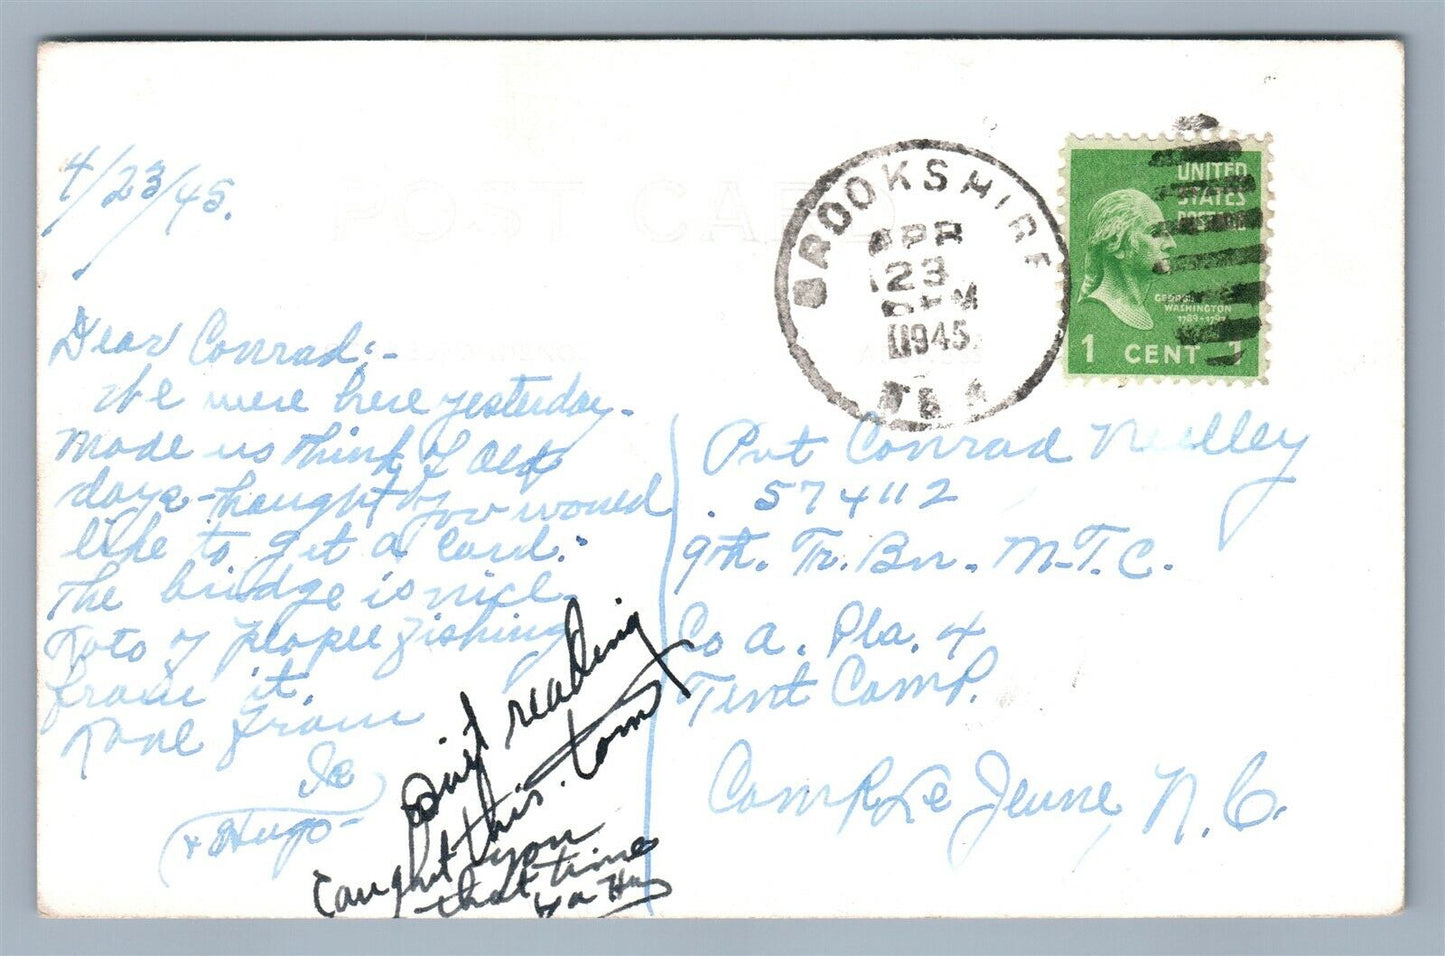 4/23/45.
POST CARD
BROOKSHIRE
APR
23
PM
1945
TEX
UNITED
STATES
POSTAGE
GEORGE
WASHINGTON
1789-1797
1 CENT 1
Dear Conrad:-
We were here yesterday-
Made us think of old
days - thought you would
like to get a card.
The bridge is nice.
Lots of people fishing
from it.
Love from
& Hugo-
reading
this. Tom
Caught you
that time
Pvt Conrad
574112
9th. Tr. Bn. M.T.C.
Co A. Pla. 4
Tent Camp.
Camp Le Jeune, N.C.